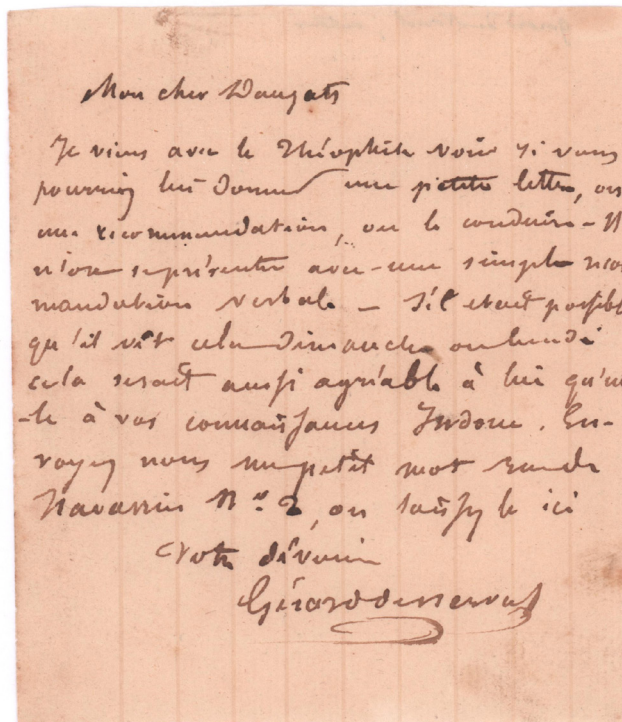 Mon cher Dauzats
Je viens avec le Théophile voir si vous
pourriez lui donner une petite lettre, ou
une recommandation, ou le conduire – Il
n'ose se présenter avec une simple recom
mandation verbale – S'il etait possible
qu'il vît cela dimanche ou lundi
cela serait aussi agréable à lui qu'u
-le à vos connaissances Indoue. En-
voyez nous un petit mot rue de
Navarin N.º 2, ou laissez le ici
Votre dévoué
Gérard de Nerval